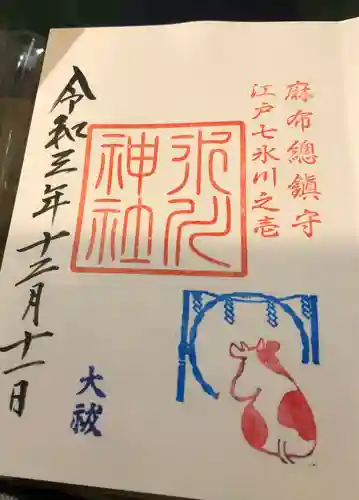 麻布總鎮守
江戸七氷川之壱
氷川
神社
大祓
令和三年十二月十一日